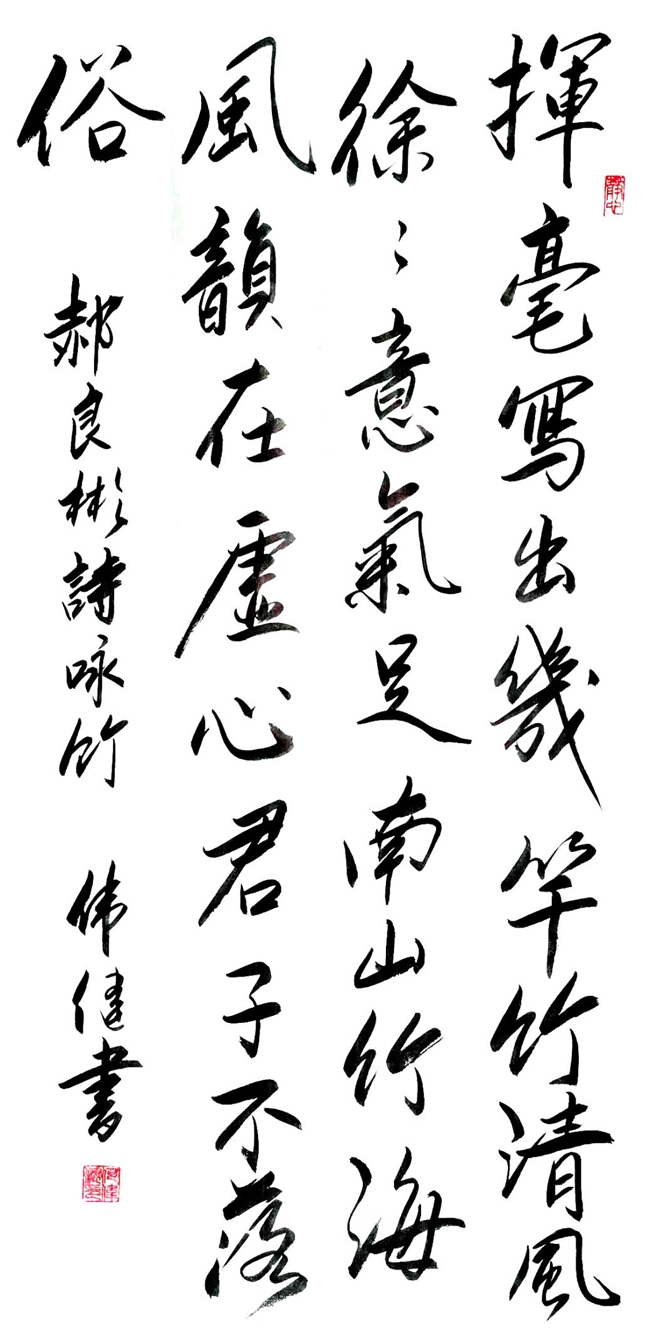 揮毫寫出幾竿竹清風
徐〻意氣足南山竹海
風韻在虛心君子不落
俗
郝良彬詩咏竹
伟健書